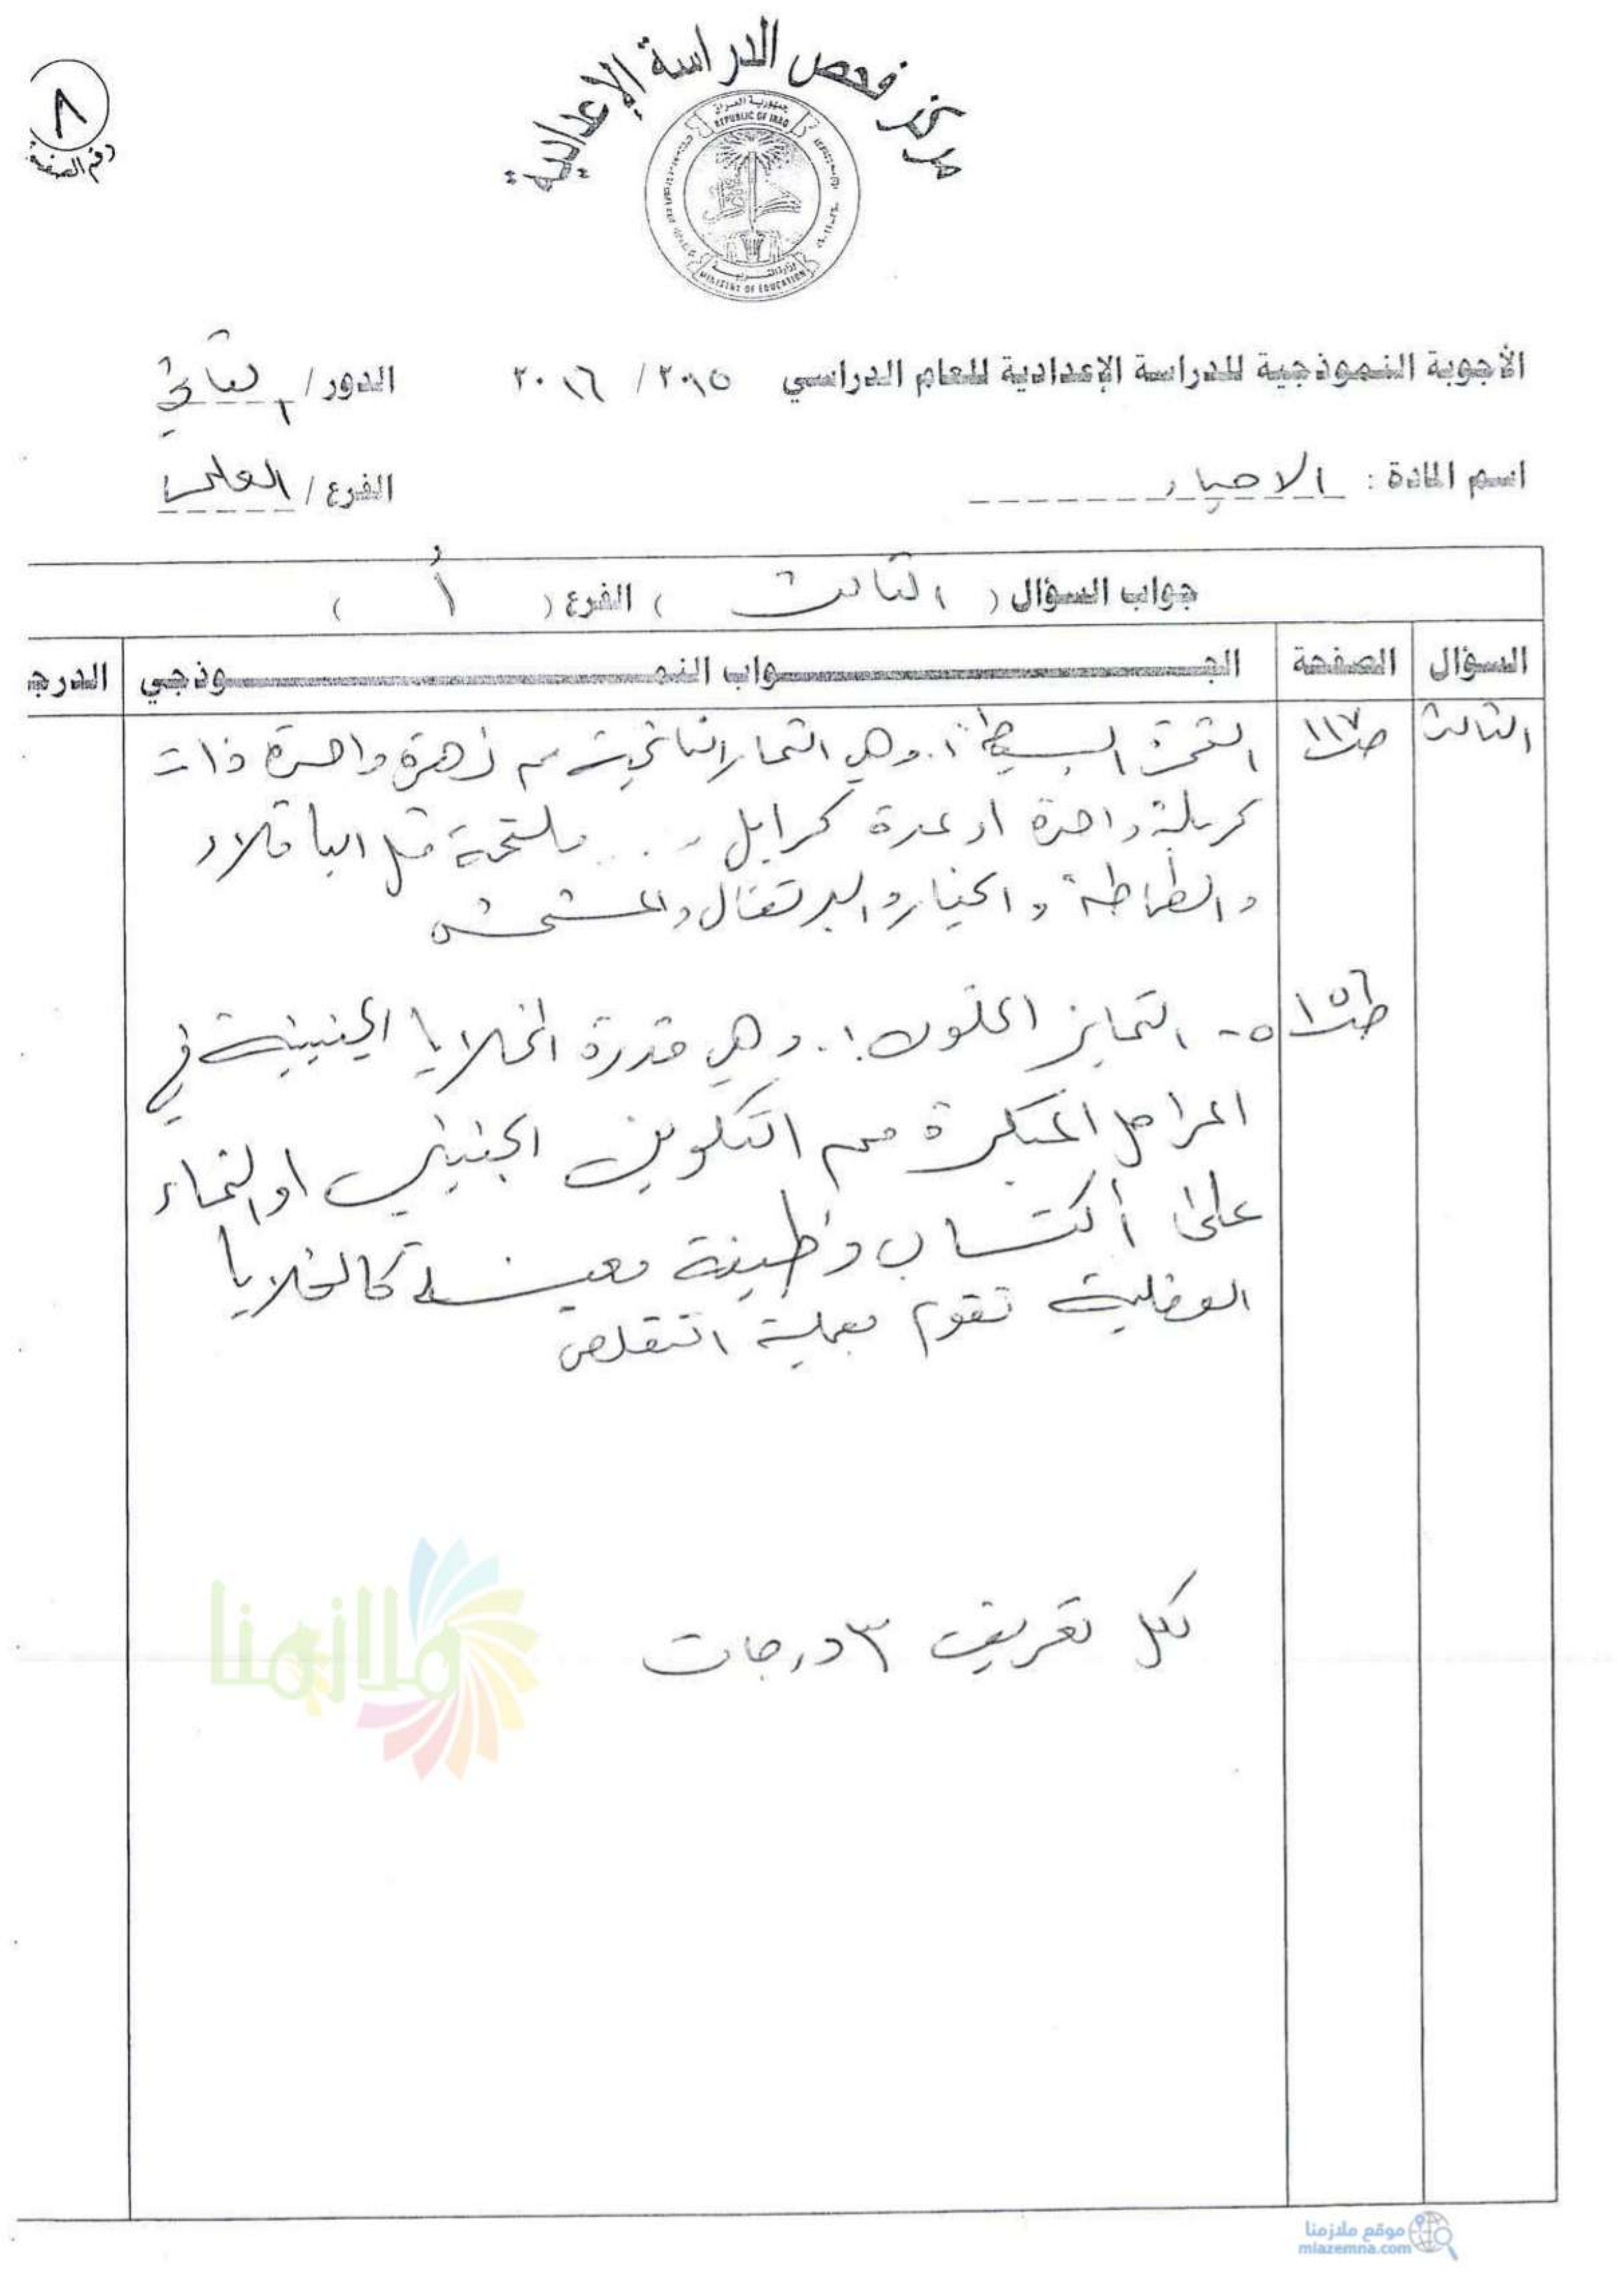 ٨
رقم الصفحة
مركز فحص الدراسة الإعدادية
جمهورية العراق
REPUBLIC OF IRAQ
وزارة التربية
MINISTRY OF EDUCATION
الأجوبة النموذجية للدراسة الإعدادية للعام الدراسي ٢٠١٥ / ٢٠١٦ الدور / الثاني
اسم المادة : الاحياء الفرع / العلمي
جواب السؤال ( الثالث ) الفرع ( أ )
السؤال الصفحة الجـــواب النمـــوذجي الدرجـ
الثالث ص١١٧ الثمرة البسيطة :. وهي الثمار الناتجة من زهرة واحدة ذات
كربلة واحدة او عدة كرابل ... ملتحمة مثل الباقلاء
والطماطة والخيار والبرتقال والمشمش
ص١٥٦ ٥- التمايز الخلوي :. وهي قدرة الخلايا الجنينية في
المراحل المبكرة من التكوين الجنيني او النماء
على أكتساب وظيفة معينة كالخلايا
العضلية تقوم بعملية التقلص
لكل تعريف ٣ درجات
ملازمنا
موقع ملازمنا
mlazemna.com